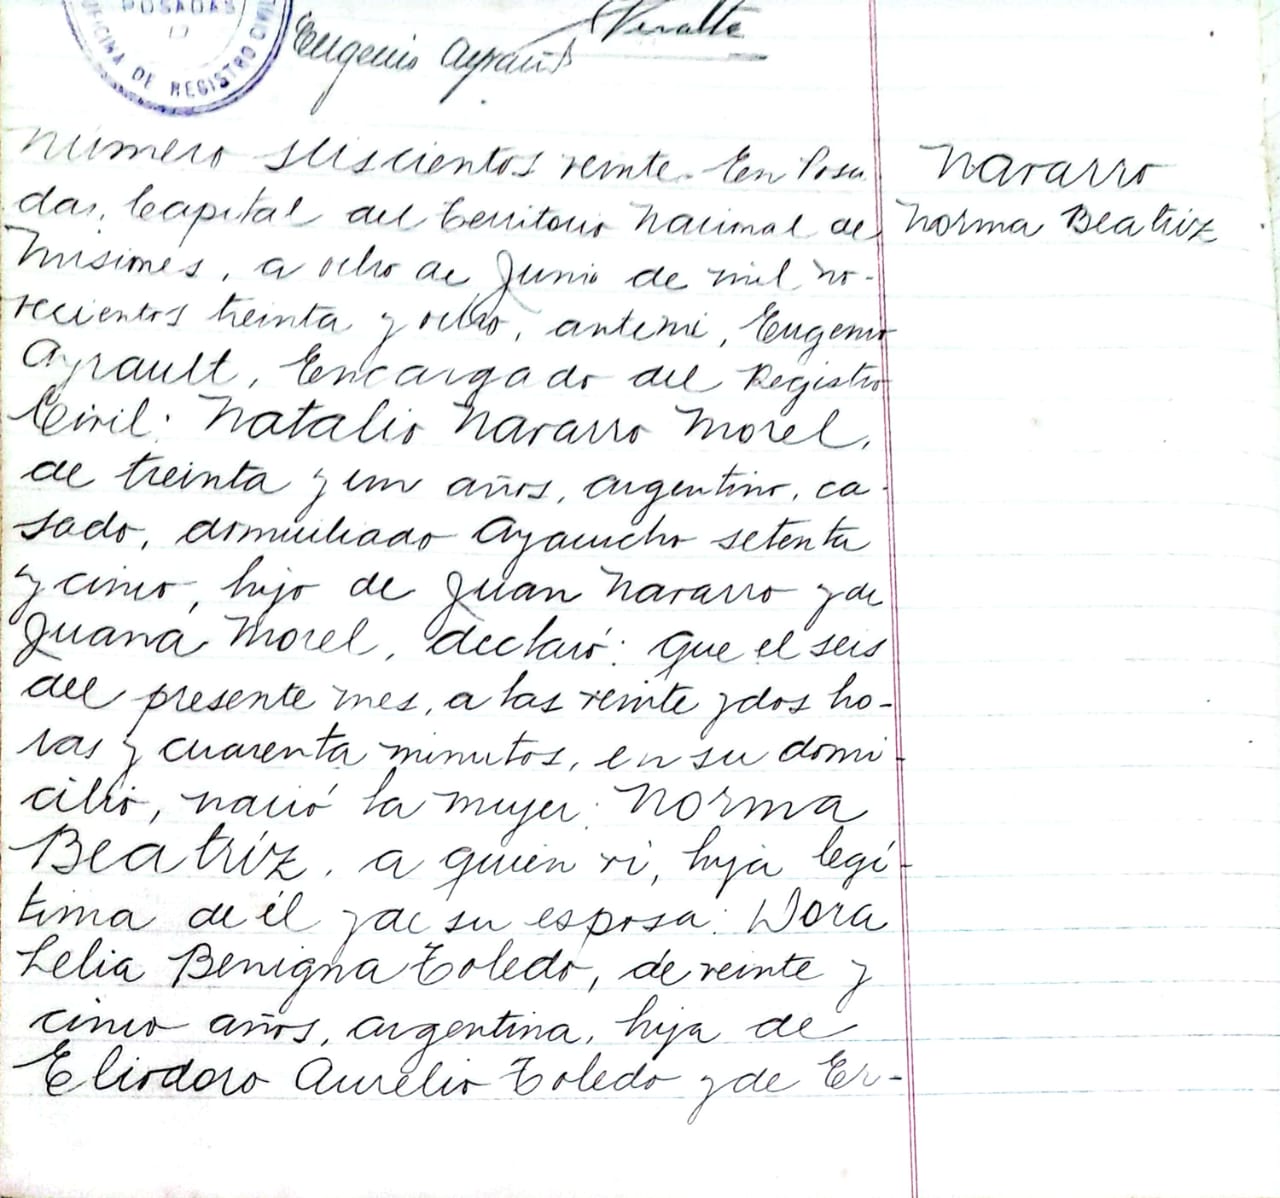 POSADAS
OFICINA DE REGISTRO CIVIL
Peralta
Eugenio Ayrault
Número seiscientos veinte. En Posa
das, Capital del Territorio Nacional de
Misiones, a ocho de Junio de mil no-
vecientos treinta y ocho, ante mi, Eugenio
Ayrault, Encargado del Registro
Civil: Natalio Navarro Morel,
de treinta y un años, argentino, ca-
sado, domiciliado Ayacucho setenta
y cinco, hijo de Juan Navarro y de
Juana Morel, declaró: Que el seis
del presente mes, a las veinte y dos ho-
ras y cuarenta minutos, en su domi-
cilio, nació la mujer: Norma
Beatríz, a quien vi, hija legí-
tima de él y de su esposa: Dora
Lelia Benigna Toledo, de veinte y
cinco años, argentina, hija de
Eliodoro Aurelio Toledo y de Er-
Navarro
Norma Beatriz